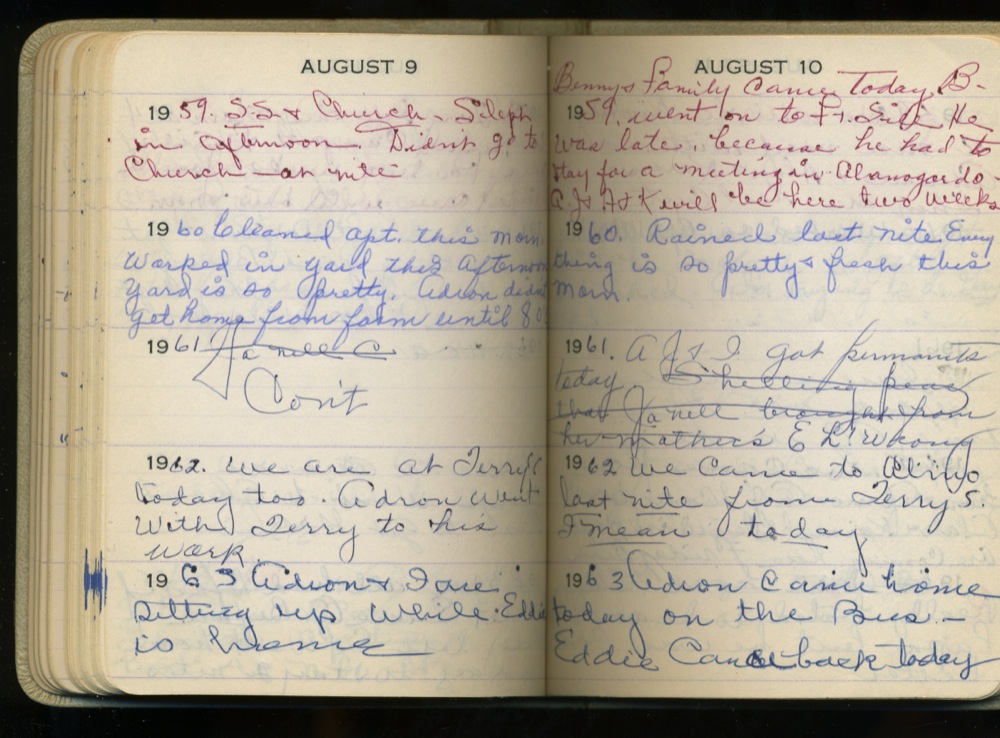 AUGUST 9
1959. S.S. & Church - Sleep
in afternoon. Didn't go to
Church at nite
1960 Cleaned apt. this morn.
Worked in yard this afternoon
Yard is so pretty. Adron didn't
get home from farm until 8
1961 Janell C
Con't
1962. We are at Terry's
today too Adron went
With Terry to his
work.
1963 Adron & I are
sitting up while Eddie
is home
AUGUST 10
Bennys Family Came Today. B-
1959. went on to Ft. Sill. He
was late, because he had to
stay for a meeting in Alamogordo -
A.J & K will be here two weeks
1960. Rained last nite. Every
thing is so pretty & fresh this
morn.
1961. A J & I got permanits
today Shelling peas
that Janell brought from
her mother's E L! Wrong
1962 We Came to
last nite from Terry's.
I mean today
1963 Adron Came home
today on the Bus. -
Eddie Came back today